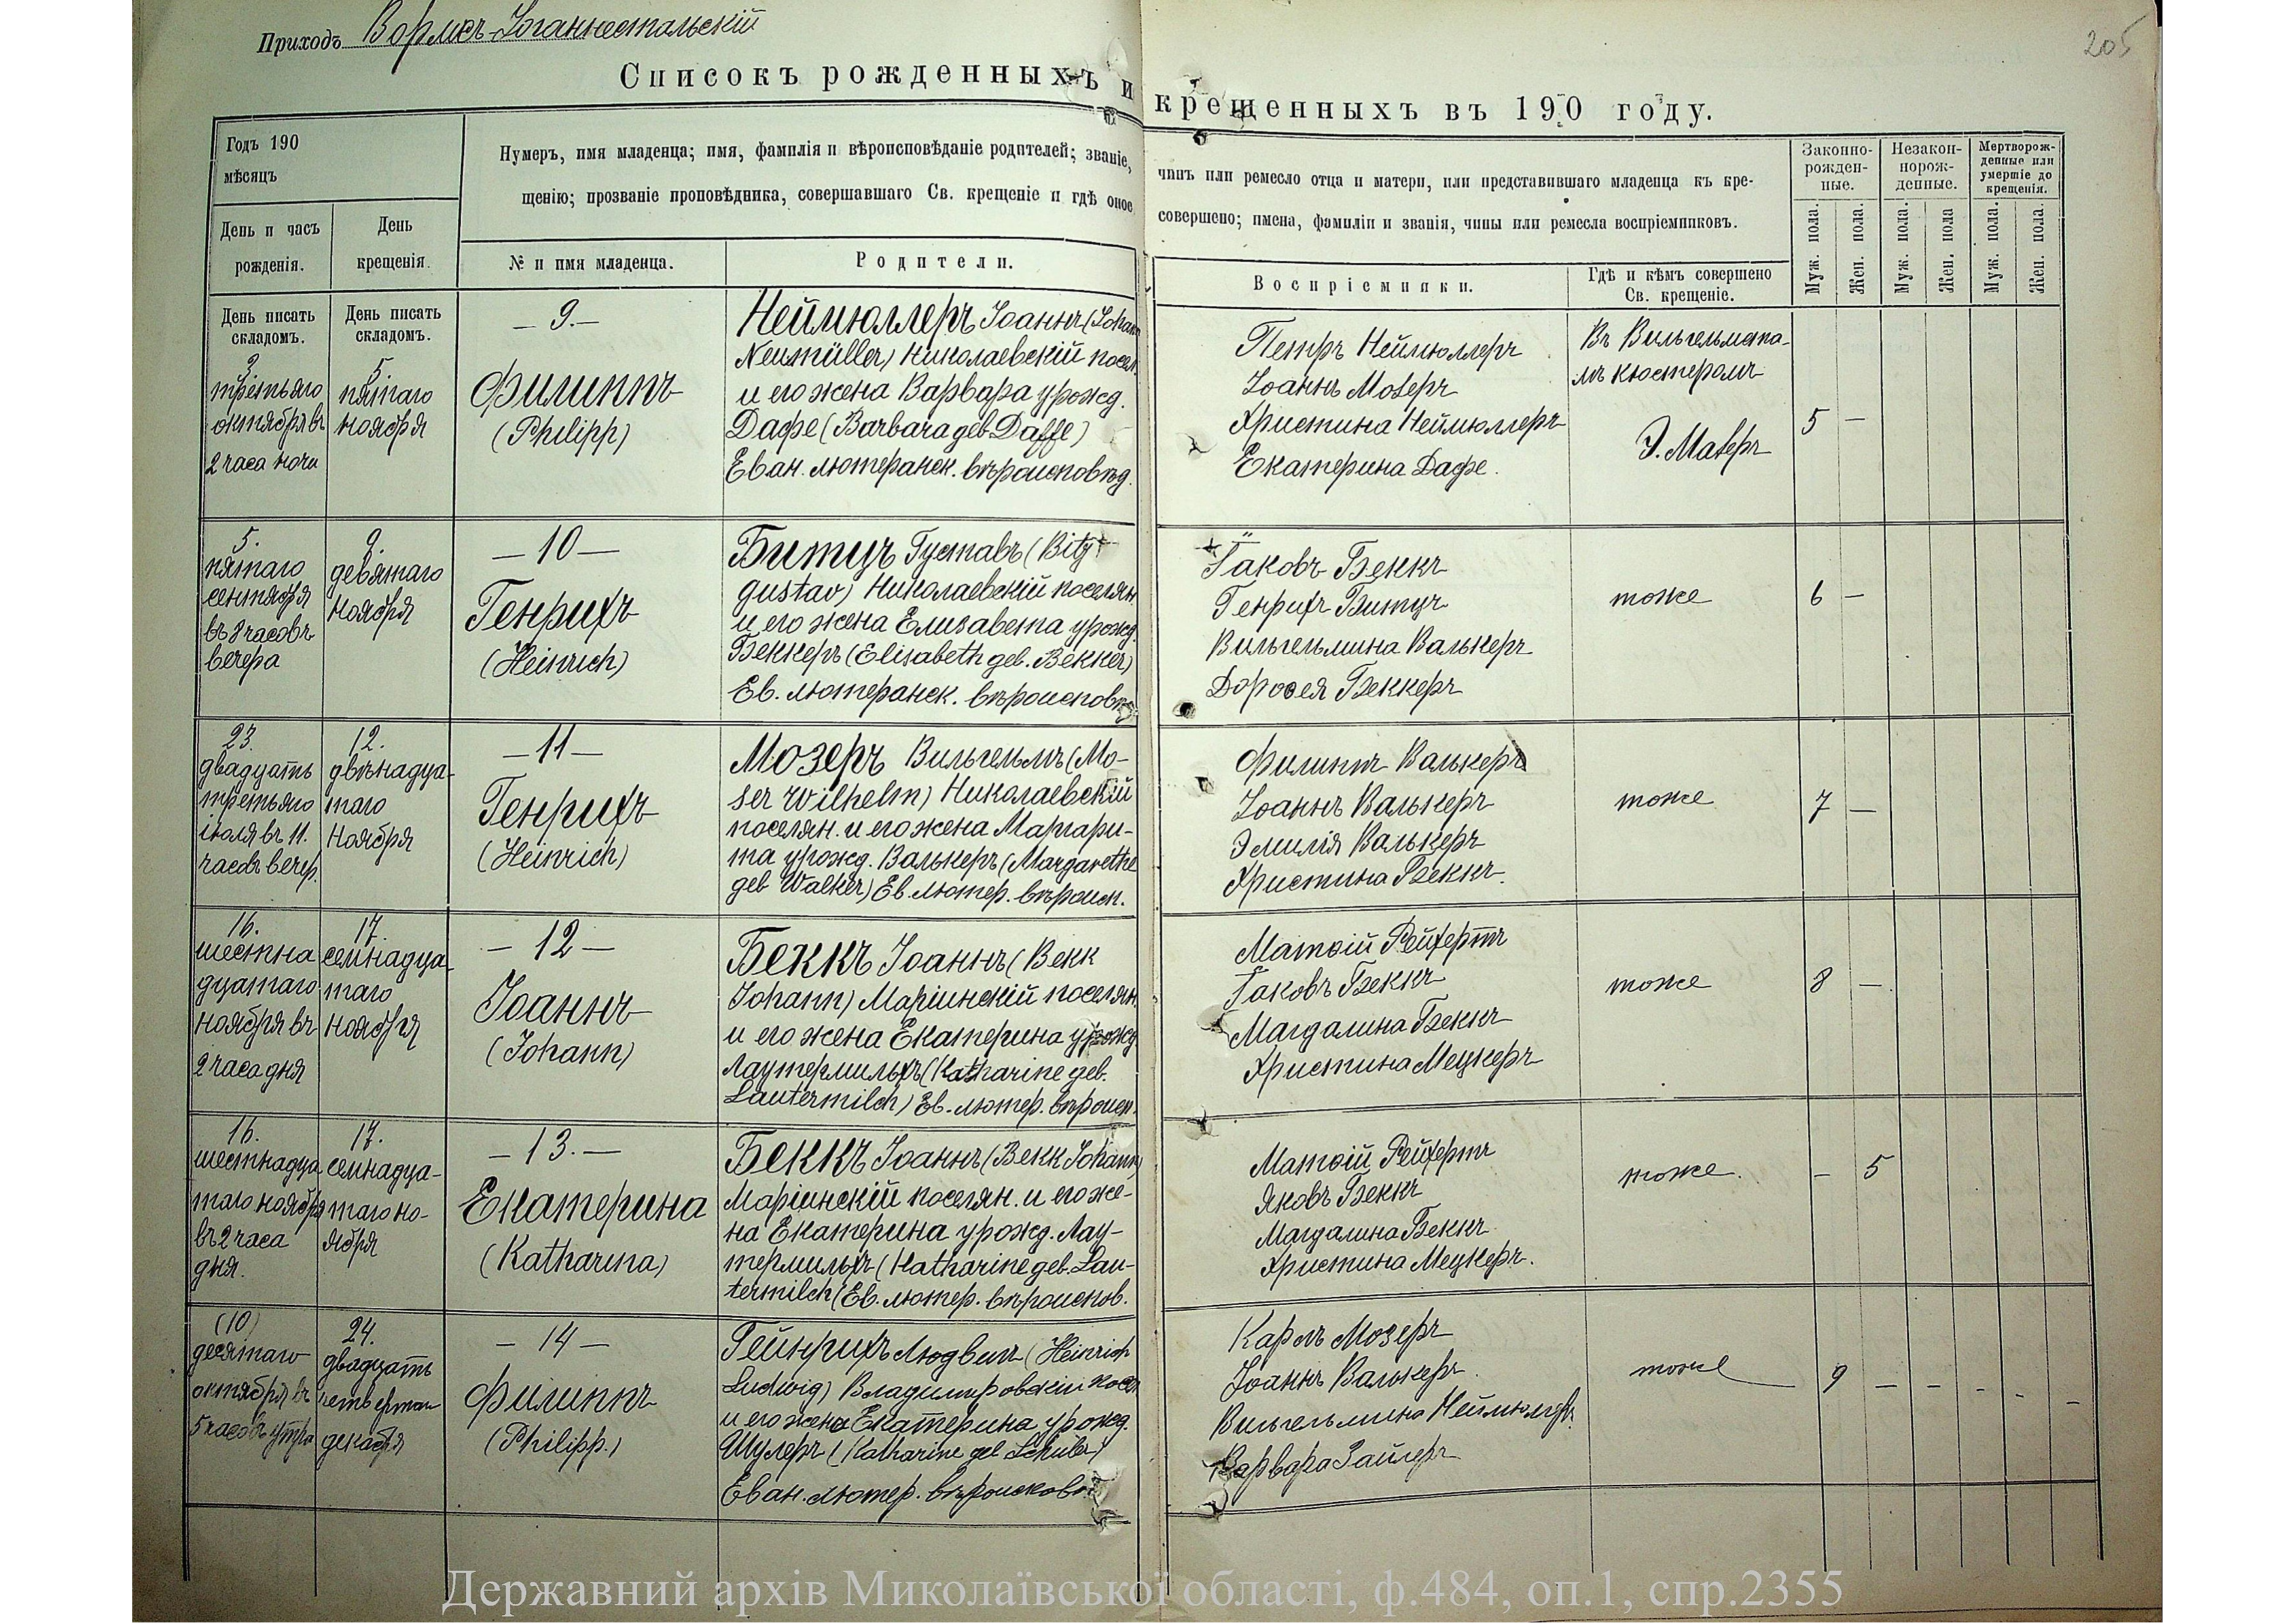 Приходъ Вормсъ-Іоганнестальскій
205
Списокъ рожденныхъ и крещенныхъ въ 190 году.
Годъ 190
мѣсяцъ
День и часъ
рожденія.
День
крещенія.
Нумеръ, имя младенца; имя, фамилія и вѣроисповѣданіе родителей; званіе, чинъ или ремесло отца и матери, или представившаго младенца къ кре-
щенію; прозваніе проповѣдника, совершавшаго Св. крещеніе и гдѣ оное совершено; имена, фамиліи и званія, чины или ремесла воспріемниковъ.
№ и имя младенца.
Родители.
Воспріемники.
Гдѣ и кѣмъ совершено
Св. крещеніе.
Законно-
рожден-
ные.
Незакон-
норож-
денные.
Мертворож-
денные или
умершіе до
крещенія.
Муж. пола.
Жен. пола.
Муж. пола.
Жен. пола
Муж. пола.
Жен. пола.
День писать
складомъ.
День писать
складомъ.
3.
третьяго
октября въ
2 часа ночи
5.
пятаго
ноября
— 9. —
Филиппъ
(Philipp)
Неймюллеръ Іоаннъ (Johann
Neumüller) Николаевскій посел.
и его жена Варвара урожд.
Дафе (Barbara geb. Daffe)
Еван. лютеранск. вѣроисповѣд.
Петръ Неймюллеръ
Іоаннъ Мозеръ
Христина Неймюллеръ
Екатерина Дафе.
Въ Вильгельмста-
лѣ кюстеромъ
5 —
5.
пятаго
сентября
въ 8 часовъ
вечера
9.
девятаго
Ноября
— 10 —
Генрихъ
(Heinrich)
Битцъ Густавъ (Bitz
Gustav) Николаевскій поселян.
и его жена Елизавета урожд.
Беккеръ (Elisabeth geb. Bekker)
Ев. лютеранск. вѣроисповѣ
Іаковъ Беккъ
Генрихъ Битцъ
Вильгельмина Валькеръ
Доровея Беккеръ
тоже
6 —
23.
двадцать
третьяго
іюля въ 11.
часовъ вечер.
12.
двѣнадца-
таго
Ноября
— 11 —
Генрихъ
(Heinrich)
Мозеръ Вильгельмъ (Mo-
ser Wilhelm) Николаевскій
поселян. и его жена Маргари-
та урожд. Валькеръ (Margarethe
геб Walker) Ев. лютер. вѣроисп.
Филиппъ Валькеръ
Іоаннъ Валькеръ
Эмилія Валькеръ
Христина Беккъ.
тоже
7 —
16.
шестна
дцатаго
ноября въ
2 часа дня
17.
семнадца
таго
ноября
— 12 —
Іоаннъ
(Johann)
Беккъ Іоаннъ (Bekk
Johann) Маріинскій поселян.
и его жена Екатерина урожд
Лаутермильхъ (Katharine geb.
Lautermilch) Ев. лютер. вѣроисп.
Матвій Рейхертъ
Іаковъ Беккъ
Магдалина Беккъ
Христина Мецкеръ
тоже
8 —
16.
шестнадца
таго ноября
въ 2 часа
дня.
17.
семнадца-
таго но-
ября
— 13. —
Екатерина
(Katharina)
Беккъ Іоаннъ (Bekk Johann)
Маріинскій поселян. и его же-
на Екатерина урожд. Лау-
термильхъ (Katharine geb. Lau-
termilch) Ев. лютер. вѣроисков.
Матвій Рейхертъ
Яковъ Беккъ
Магдалина Беккъ
Христина Мецкеръ.
тоже.
— 5
(10)
десятаго
октября въ
5 часовъ утра
24.
двадцать
четвертаго
декабря
— 14 —
Филиппъ
(Philipp.)
Гейнрихъ Людвигъ (Heinrich
Ludwig) Владимировскій посел.
и его жена Екатерина урожд.
Шулеръ (Katharine geb Schuler)
Еван. лютер. вѣроисков
Карлъ Мозеръ
Іоаннъ Валькеръ.
Вильгельмина Неймюллеръ
Варвара Зайлеръ
тоже
9 — — — — —
Державний архів Миколаївської області, ф.484, оп.1, спр.2355